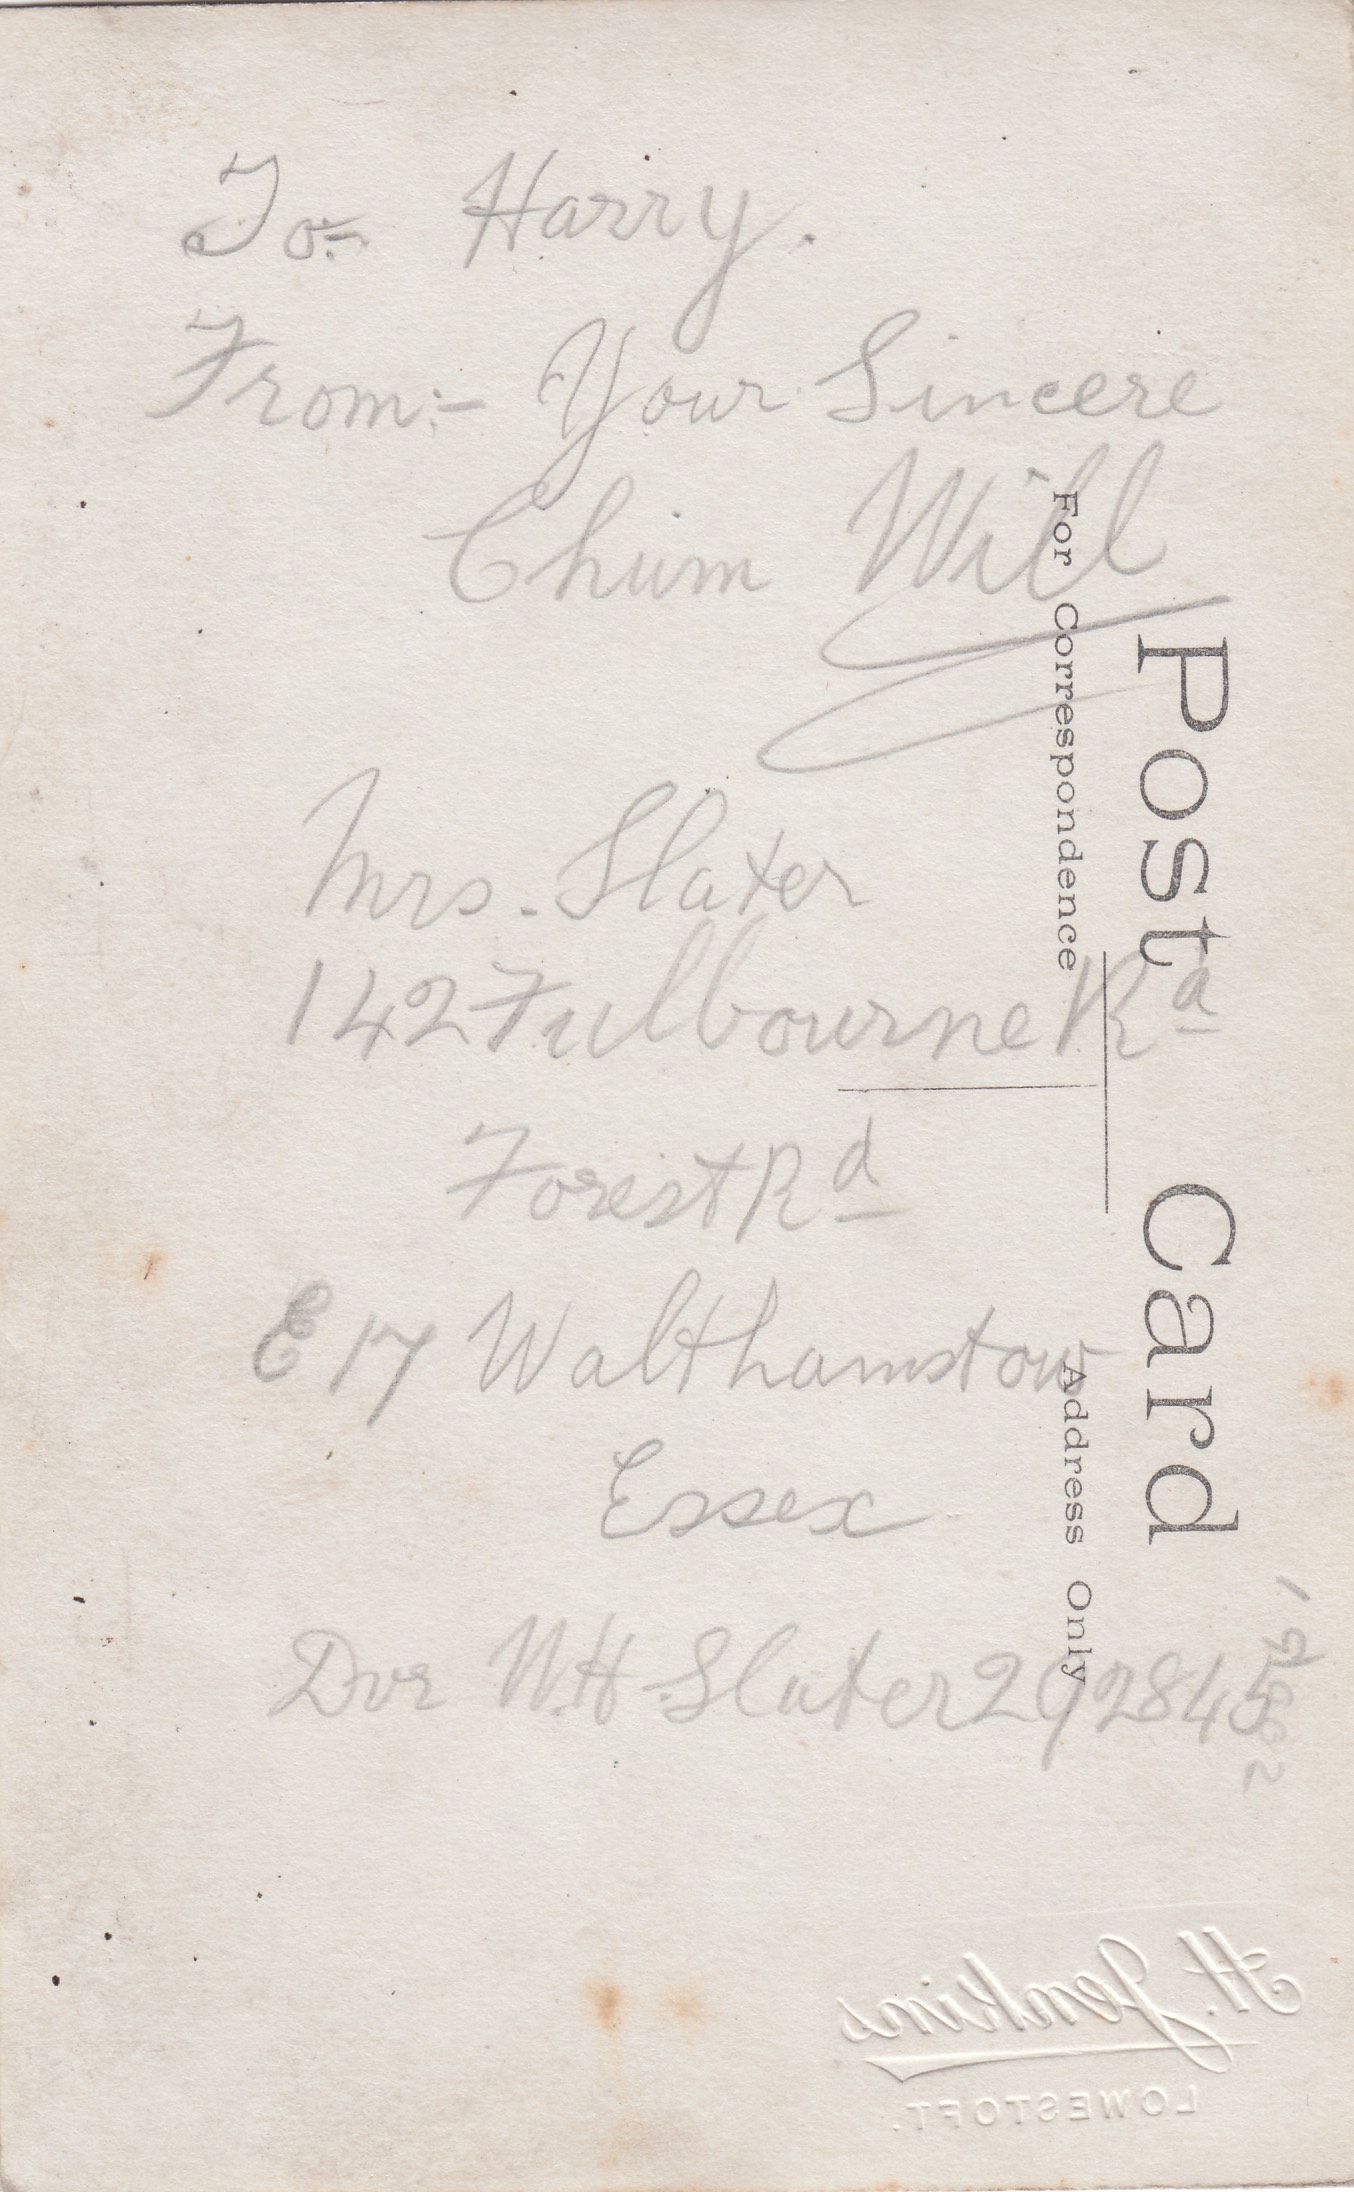 To:- Harry.
From:- Your Sincere
Chum Will
Mrs. Slater
142 Fulbourne Rd
Forest Rd
E 17 Walthamstow
Essex
Dvr W.H Slater 292845
Post Card
For Correspondence
Address Only
H. Jenkins
LOWESTOFT.